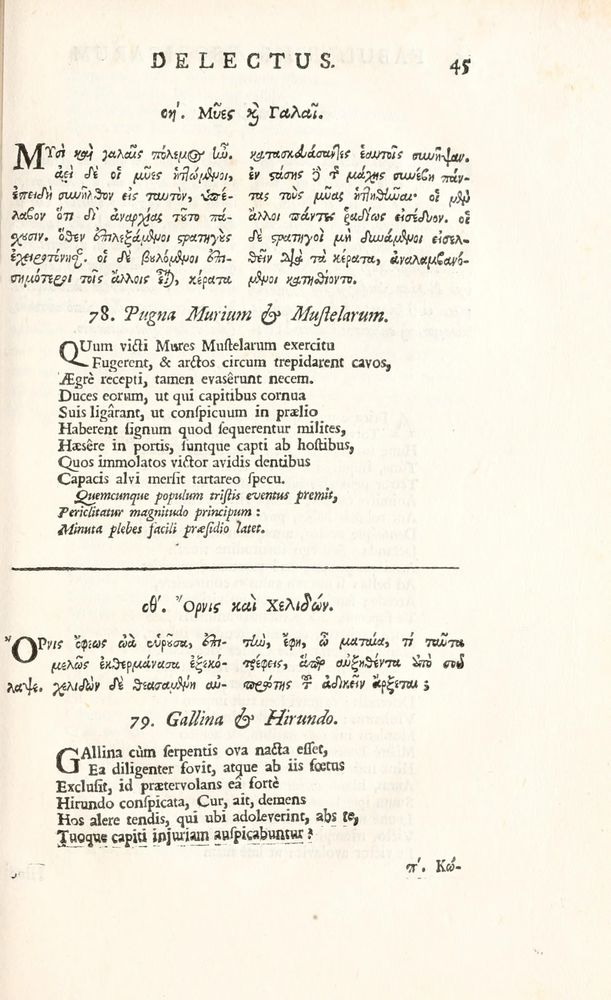 DELECTUS. 45
οη'. Μῦες καὶ Γαλαῖ.
ΜΥσὶ καὶ γαλαῖς πόλεμος ἦν.
ἀεὶ δὲ οἱ μῦες ἡττώμενοι,
ἐπειδὴ συνῆλθον εἰς ταυτὸν, ὑπέ-
λαβον ὅτι δι' ἀναρχίας τοῦτο πά-
χουσιν. ὅθεν ἐπιλεξάμενοι στρατηγοὺς
ἐχειροτόνησαν. οἱ δὲ βουλόμενοι ἐπι-
σημότεροι τοῖς ἄλλοις εἶναι, κέρατα
κατασκευάσαντες ἑαυτοῖς συνῆψαν.
ἐν στάσης δὲ τῆς μάχης συνέβη πάν-
τας τοὺς μῦας ἡττηθῆναι· οἱ μὲν
ἄλλοι πάντες ῥαδίως εἰσέδυον. οἱ
δὲ στρατηγοὶ μὴ δυνάμενοι εἰσελ-
θεῖν διὰ τὰ κέρατα, ἀναλαμβανό-
μενοι κατηθίοντο.
78. Pugna Murium & Muſtelarum.
QUum victi Mures Muſtelarum exercitu
Fugerent, & arctos circum trepidarent cavos,
Ægrè recepti, tamen evasêrunt necem.
Duces eorum, ut qui capitibus cornua
Suis ligârant, ut conſpicuum in prælio
Haberent ſignum quod ſequerentur milites,
Hæsêre in portis, ſuntque capti ab hoſtibus,
Quos immolatos victor avidis dentibus
Capacis alvi merſit tartareo ſpecu.
Quemcunque populum triſtis eventus premit,
Periclitatur magnitudo principum:
Minuta plebes facili præſidio latet.
οθ'. Ὄρνις καὶ Χελιδών.
ὌΡνις ὄφεως ὠὰ εὑροῦσα, ἐπι-
μελῶς ἐκθερμάνασα ἐξεκό-
λαψε. χελιδὼν δὲ θεασαμένη αὐ-
τὴν, ἔφη, ὦ ματαία, τί ταῦτα
τρέφεις, ἅπερ αὐξηθέντα ὑπὸ σοῦ
πρώτης τοῦ ἀδικεῖν ἄρξεται;
79. Gallina & Hirundo.
GAllina cùm ſerpentis ova nacta eſſet,
Ea diligenter fovit, atque ab iis fœtus
Excluſit, id prætervolans ea fortè
Hirundo conſpicata, Cur, ait, demens
Hos alere tendis, qui ubi adoleverint, abs te,
Tuoque capiti injuriam auſpicabuntur?
π'. Κώ-